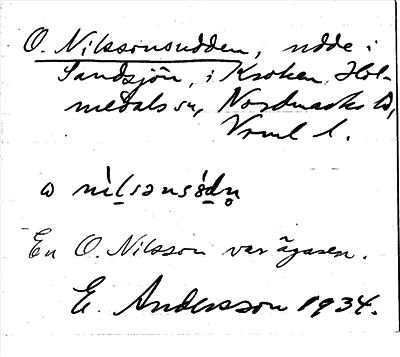 O. Nilssonsudden, udde i
Sandsjön, i Kroken, Höl-
medals sn, Nordmarks hd,
Vrml l.
En O. Nilsson var ägaren.
E. Andersson 1934.